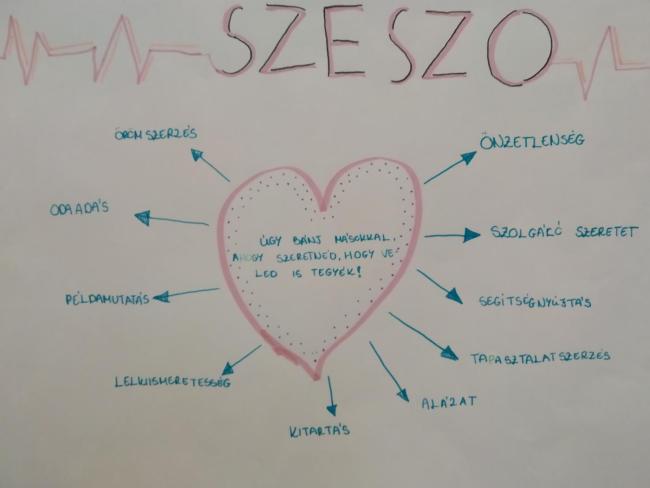 SZESZO
ÖRÖMSZERZÉS
ÖNZETLENSÉG
ODAADÁS
SZOLGÁLÓ SZERETET
ÚGY BÁNJ MÁSOKKAL,
AHOGY SZERETNÉD, HOGY VE-
LED IS TEGYÉK!
PÉLDAMUTATÁS
SEGÍTSÉGNYÚJTÁS
TAPASZTALATSZERZÉS
LELKIISMERETESSÉG
ALÁZAT
KITARTÁS